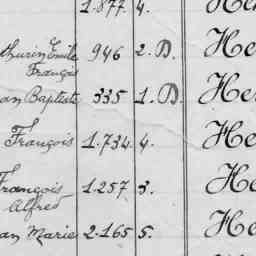 1.877 4. He
thurin Emile 946 2.D. He
François
an Baptiste 335 1.D. He
François 1.734. 4. He
François 1.257 3. He
Alfred
an Marie 2.165 5. He